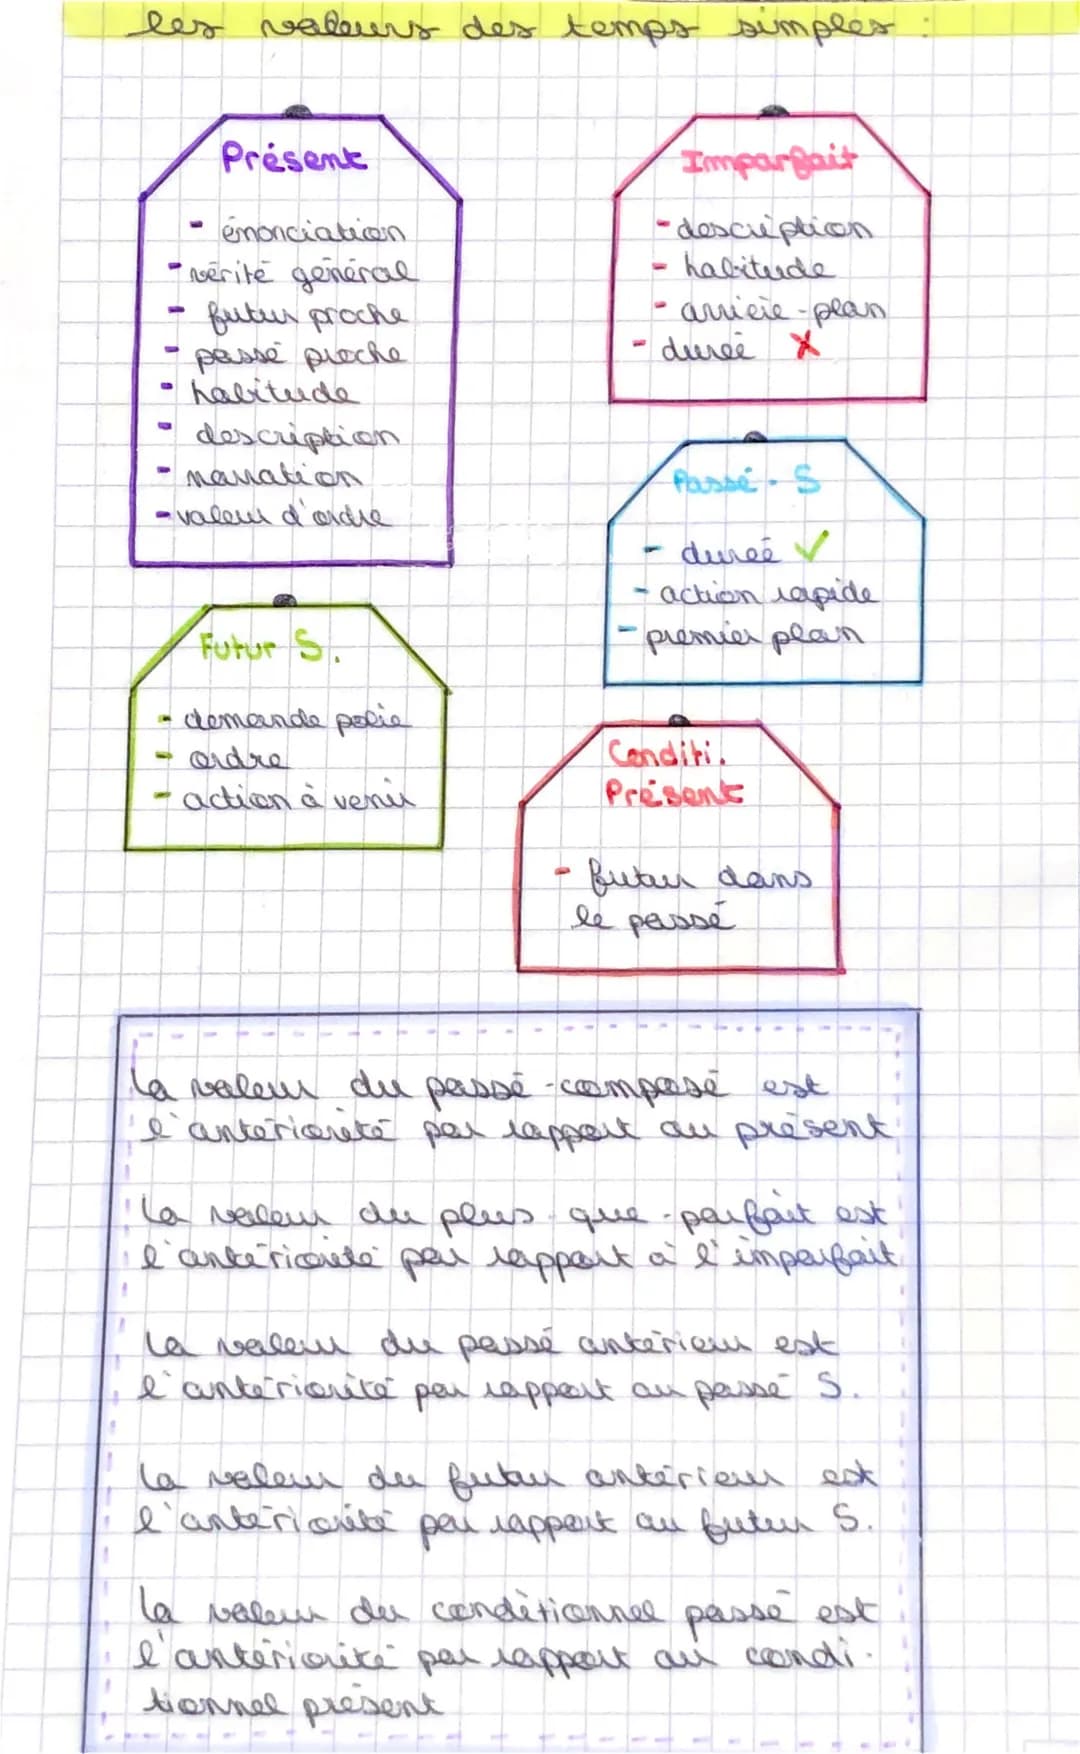 les valeurs des temps simples :
Présent
- énonciation
- vérité général
- futur proche
- passé proche
- habitude
- description
- narration
- valeur d'ordre
Imparfait
- description
- habitude
- arrière-plan
- durée X
Passé - S
- durée ✓
- action rapide
- premier plan
Futur S.
- demande polie
- ordre
- action à venir
Conditi.
Présent
- futur dans
le passé
La valeur du passé-composé est
l'antériorité par rapport au présent
La valeur du plus-que-parfait est
l'antériorité par rapport à l'imparfait
La valeur du passé antérieur est
l'antériorité par rapport au passé S.
La valeur du futur antérieur est
l'antériorité par rapport au futur S.
La valeur du conditionnel passé est
l'antériorité par rapport au condi-
tionnel présent